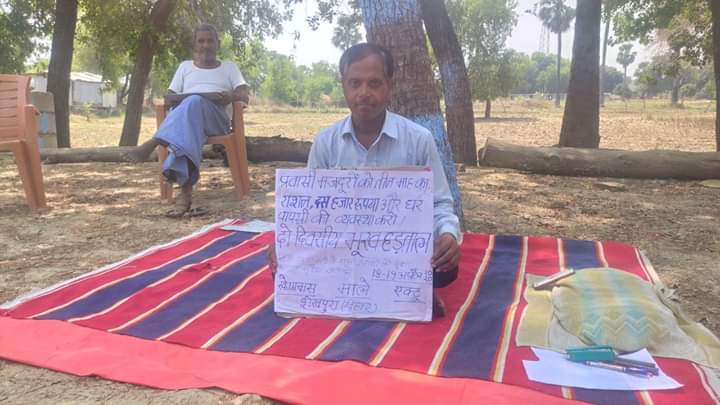 प्रवासी मजदूरों को तीन माह का
राशन, दस हजार रूपया और घर
वापसी की व्यवस्था करो!
दो दिवसीय भूख हड़ताल
18-19 अप्रैल 20
माले एक्टू
शेखपुरा (बिहार)